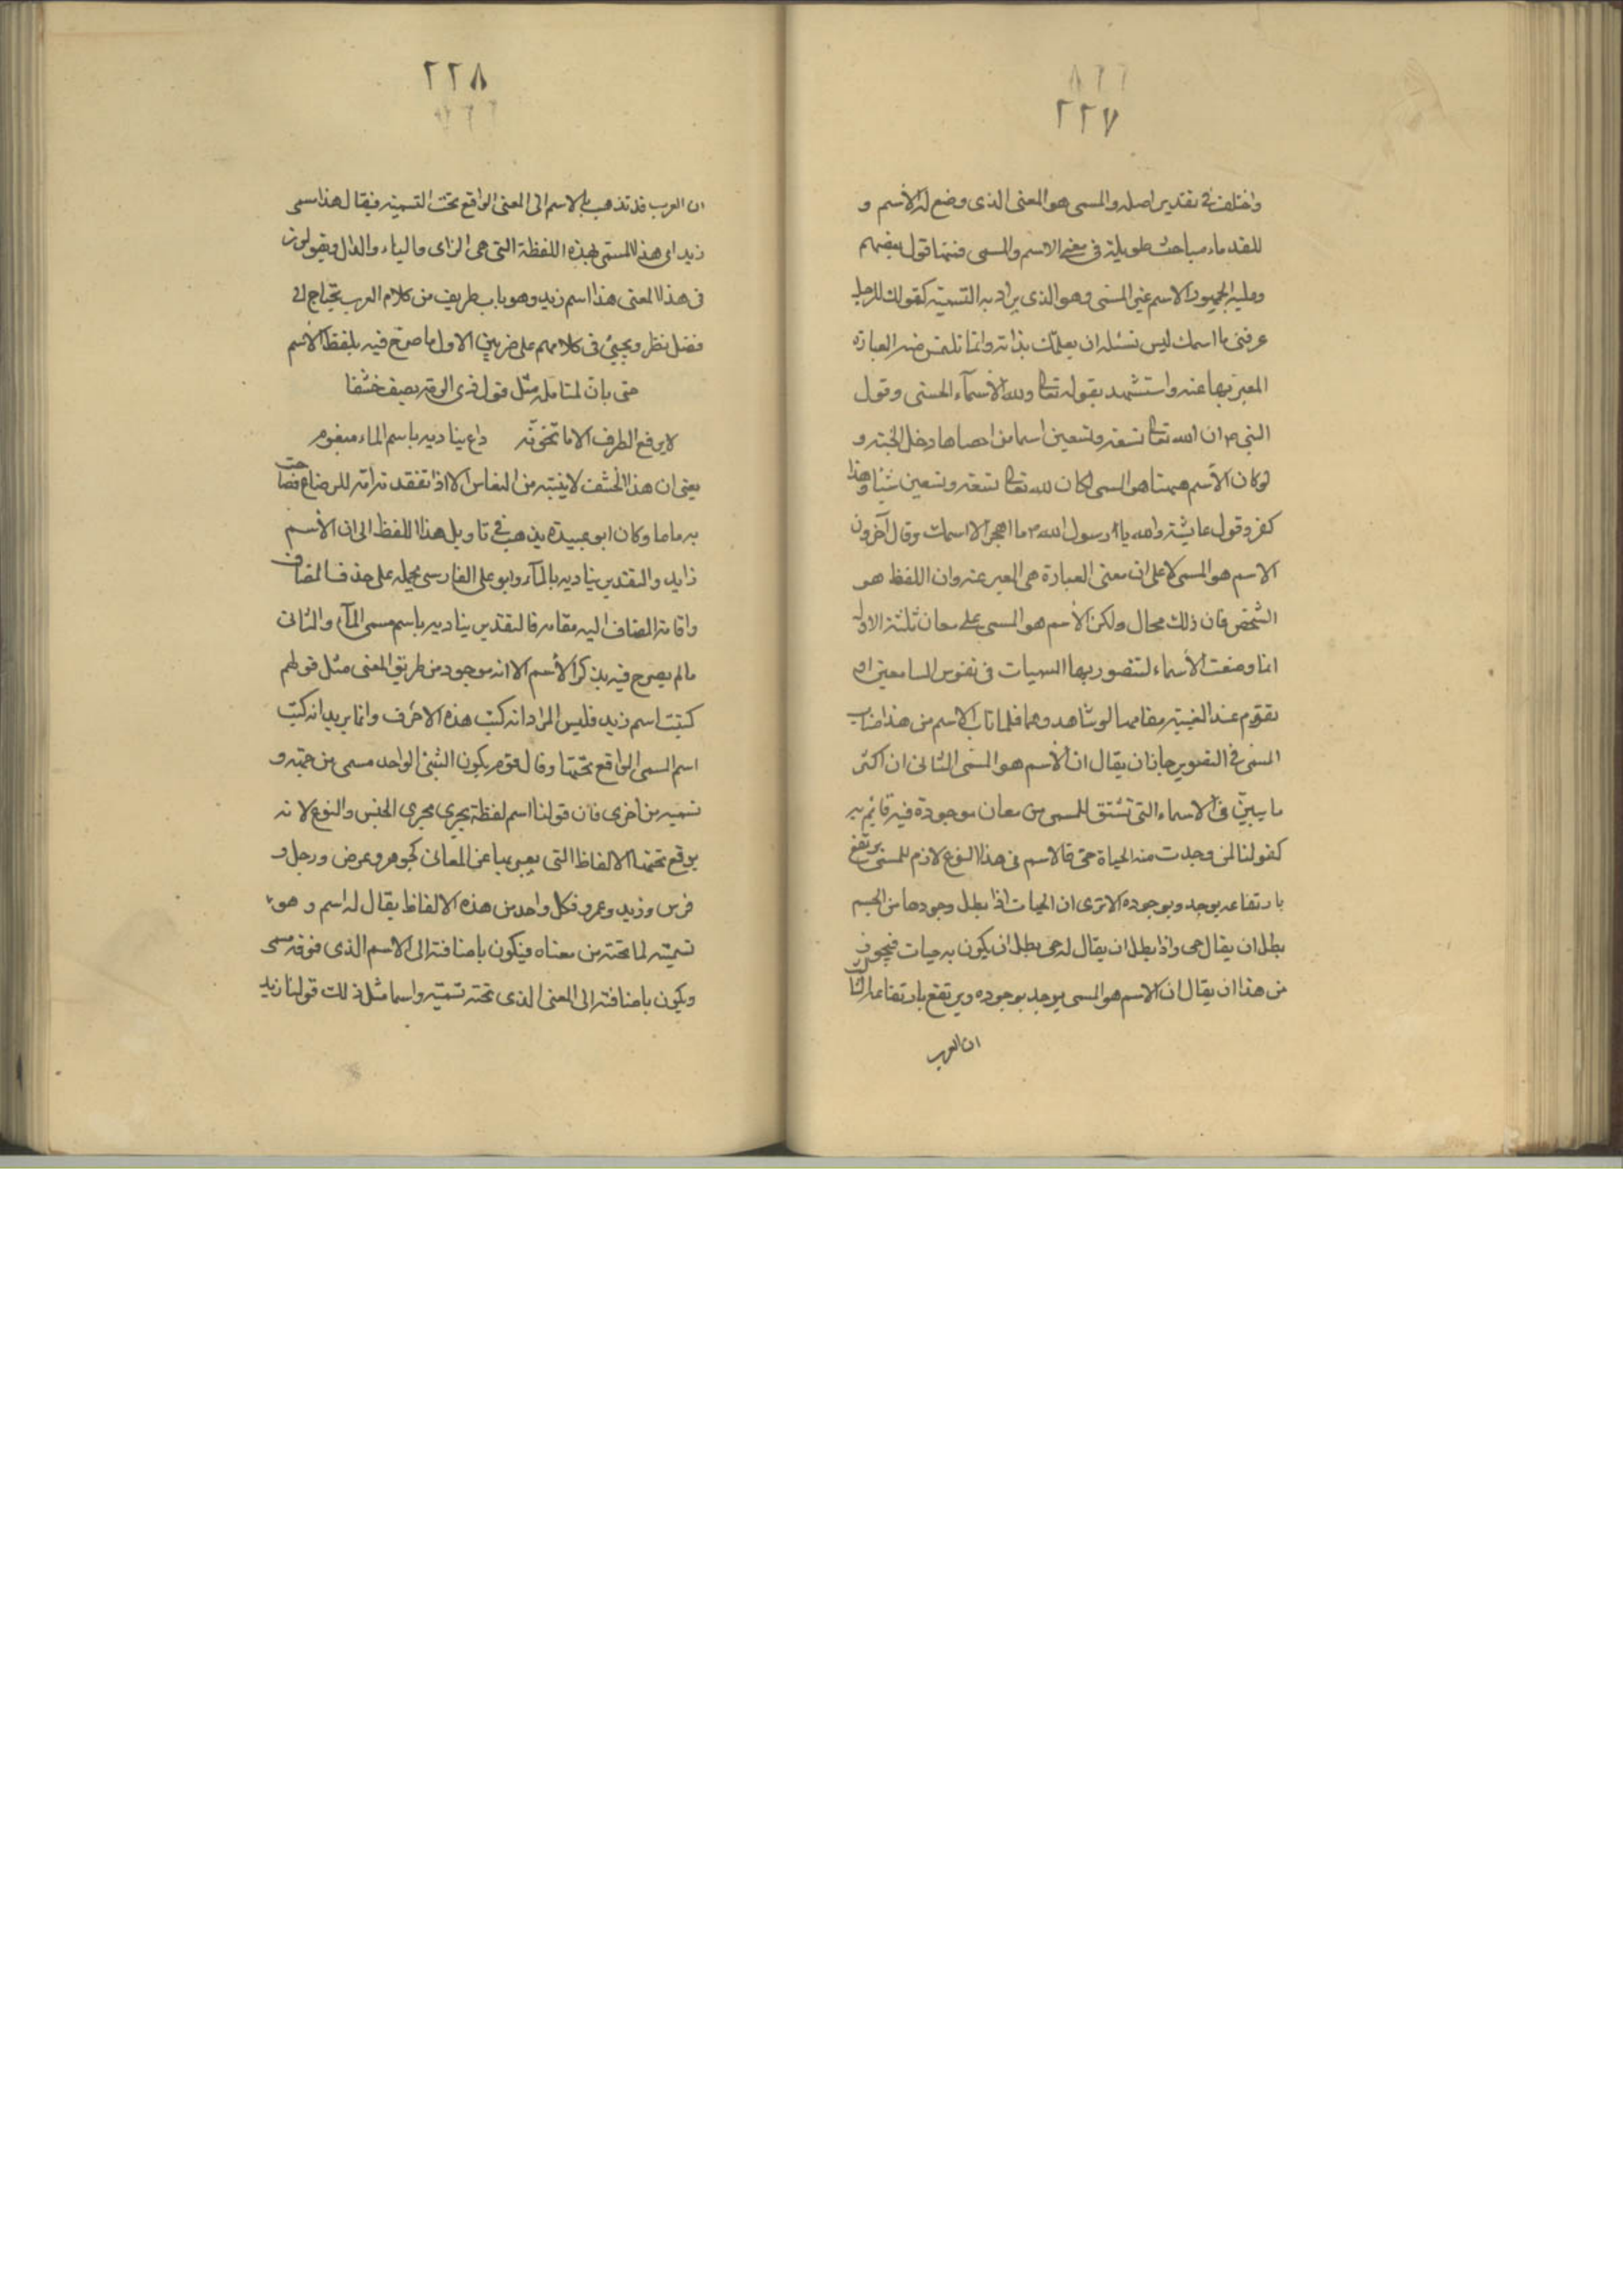 ٢٢٧
واختلف في تقدير اصله والمسمى هو المعنى الذى وضع له الأسم و
للقدماء مباحث طويلة فى معنى الاسم والمسمى فمنها قول بعضهم
وعليه الجمهور الاسم غير المسمى وهو الذى يراد به التسمية كقولك للرجل
عرفنى ما اسمك ليس تسئله ان يعلمك بذاته وانما تلتمس منه العبارة
المعبر بها عنه واستشهد بقوله تعالى ولله الأسمآء الحسنى وقول
النبى ص ان الله تعالى تسعة وتسعين اسما من احصاها دخل الجنة و
لو كان الأسم هيهنا هو المسمى لكان لله تعالى تسعة وتسعين شيئا وهذا
كفر وقول عايشة والله يا رسول الله ص ما اهجر الا اسمك وقال آخرون
الاسم هو المسمى لا على ان معنى العبارة هى المعبر عنه وان اللفظ هو
الشخص فان ذلك محال ولكن الأسم هو المسمى على معان ثلثة الاول
انما وضعت الأسماء لتتصور بها المسميات فى نفوس السامعين او
تقوم عند الغيبة مقامها لو شاهدوها فلما ناب الاسم من هذا مناب
المسمى فى التصوير جاز ان يقال ان الأسم هو المسمى الثانى ان اكثر
ما يبين فى الاسماء التى تشتق للمسمى من معان موجودة فيه قائم به
كقولنا لمن وجدت منه الحياة حى فالاسم فى هذا النوع لازم للمسمى يرتفع
بارتفاعه يوجد وبوجوده الا ترى ان الحيات اذا بطل وجودها من الجسم
بطل ان يقال حى واذا بطل ان يقال له حى بطل ان يكون به حيات فيجوز
من هذا ان يقال ان الاسم هو المسمى يوجد بوجوده ويرتفع بارتفاعه الثالث
ان العرب
٢٢٨
ان العرب قد تذهب بالاسم الى المعنى الواقع تحت التسمية فيقال هذا مسمى
زيد اى هذا المسمى بهذه اللفظة التى هى الزاى والياء والدال ويقولون
فى هذا المعنى هذا اسم زيد وهو باب طريف من كلام العرب يحتاج الى
فضل نظر ويجيئ فى كلامهم على ضربين الاول ما صرح فيه بلفظ الأسم
حتى بان لمتامله مثل قول ذى الرمة يصف خشفا
لا يرفع الطرف الا ما تخونه داع يناديه باسم الماء مبغوم
يعنى ان هذا الخشف لا ينبه من النعاس الا اذا تفقدته امه للرضاع فصاحت
به ماما وكان ابو عبيدة يذهب فى تاويل هذا اللفظ الى ان الأسم
زايد والتقدير يناديه بالمآء وابو على الفارسى يحمله على حذف المضاف
واقامة المضاف اليه مقامه فالتقدير يناديه باسم مسمى المآء والثانى
ما لم يصرح فيه بذكر الأسم الا انه موجود من طريق المعنى مثل قولهم
كتبت اسم زيد فليس المراد انه كتب هذه الاحرف وانما يريد انه كتب
اسم المسمى الواقع تحتها وقال قوم يكون الشيئ الواحد مسمى من جهة و
تسمية من اخرى فان قولنا اسم لفظة يجرى مجرى الجنس والنوع لانه
يوقع تحتها الالفاظ التى يعبر بها عن المعانى كجوهر وعرض ورجل و
فرس وزيد وعمرو فكل واحد من هذه الالفاظ يقال له اسم و هو
تسمية لما تحته من معناه فيكون باضافته الى الاسم الذى فوقه مسمى
ويكون باضافته الى المعنى الذى تحته تسمية واسما مثل ذلك قولنا زيد